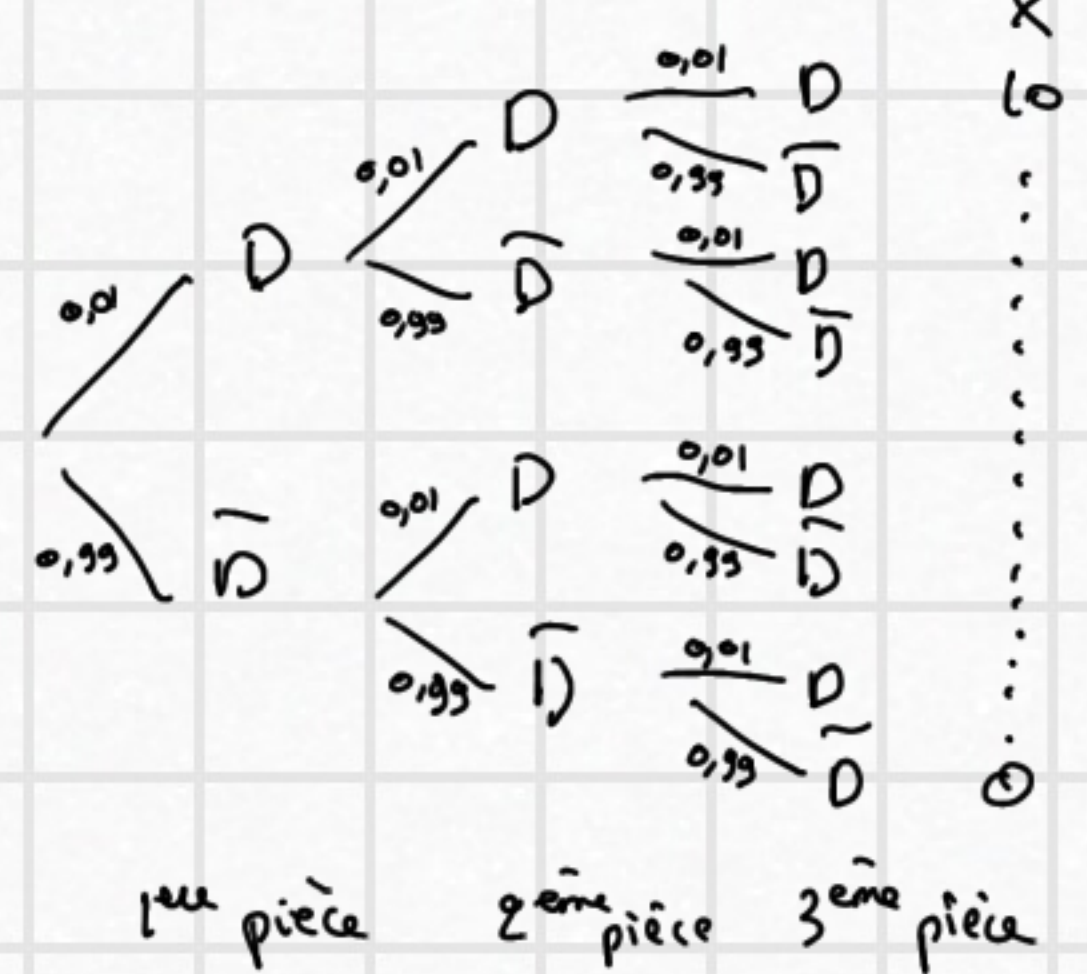 X
0,01 D 10
D
0,01 0,99 D̅
D 0,01 D
0,01 D̅
0,99 0,99 D̅
0,01 D
D
0,01 0,99 D̅
0,99 D̅
0,01 D
0,99 D̅
0,99 D̅ 0
1ère pièce 2ème pièce 3ème pièce